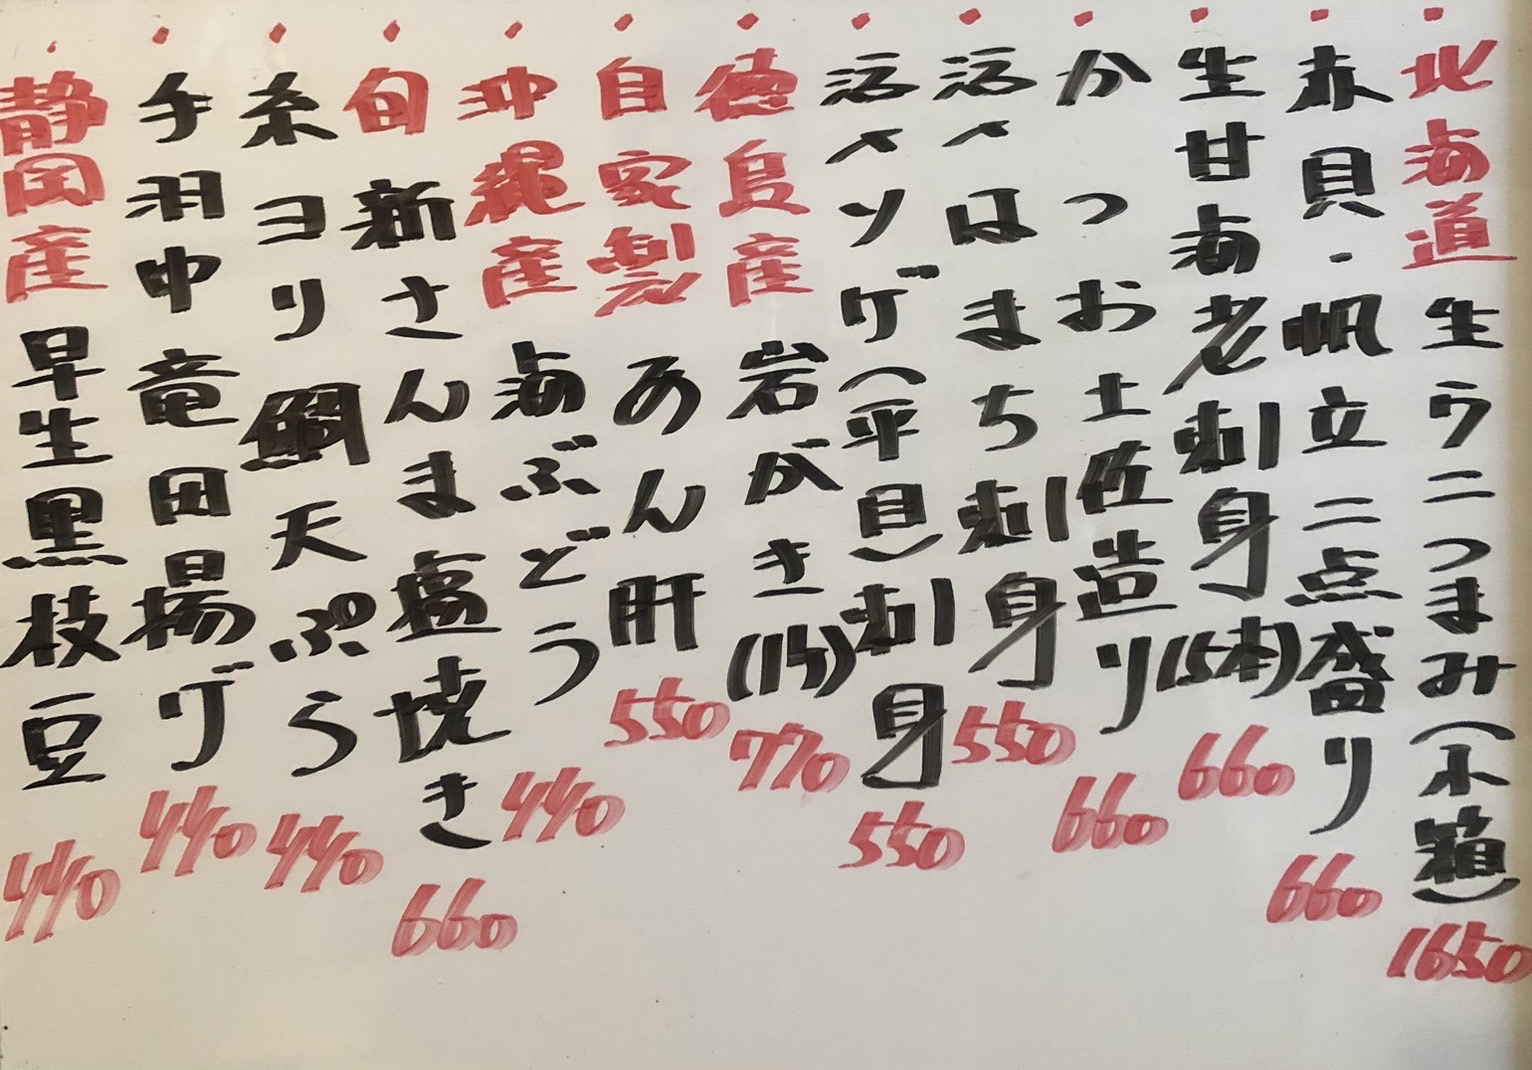 ・北海道 生ウニつまみ(小箱) 1650
・赤貝・帆立二点盛り 660
・生甘海老刺身(5本) 660
・かつお土佐造り 660
・活〆はまち刺身 550
・活〆ソゲ(平目)刺身 550
・徳島産 岩がき(1ヶ) 770
・自家製 あん肝 550
・沖縄産 海ぶどう 440
・旬 新さんま塩焼き 660
・糸ヨリ鯛天ぷら 440
・手羽中竜田揚げ 440
・静岡産 早生黒枝豆 440